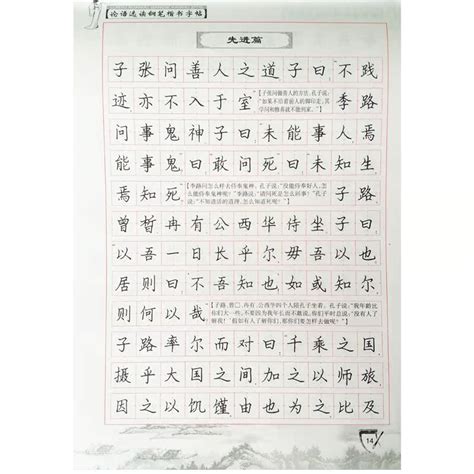 论语选读钢笔楷书字帖
先进篇
子张问善人之道子曰不践
迹亦不入于室
【子张问做善人的方法，孔子说：
“如果不沿着前人的脚印走，其
学问和修养就不能到家。”】
季路
问事鬼神子曰未能事人焉
能事鬼曰敢问死曰未知生
焉知死
【季路问怎么样去侍奉鬼神。孔子说：“没能侍奉好人，怎
么能侍奉鬼呢？”季路说：“请问死是怎么回事？”孔子
说：“不知道活的道理，怎么知道死呢？”】
子路
曾皙冉有公西华侍坐子曰
以吾一日长乎尔毋吾以也
居则曰不吾知也如或知尔
则何以哉
【子路、曾□、冉有、公西华四个人陪孔子坐着。孔子说：“我年龄比
你们大一些，不要因为我年长而不敢说。你们平时总说：‘没有人了
解我！’假如有人了解你们，那你们要怎样去做呢？”】
子路率尔而对曰千乘之国
摄乎大国之间加之以师旅
因之以饥馑由也为之比及
14